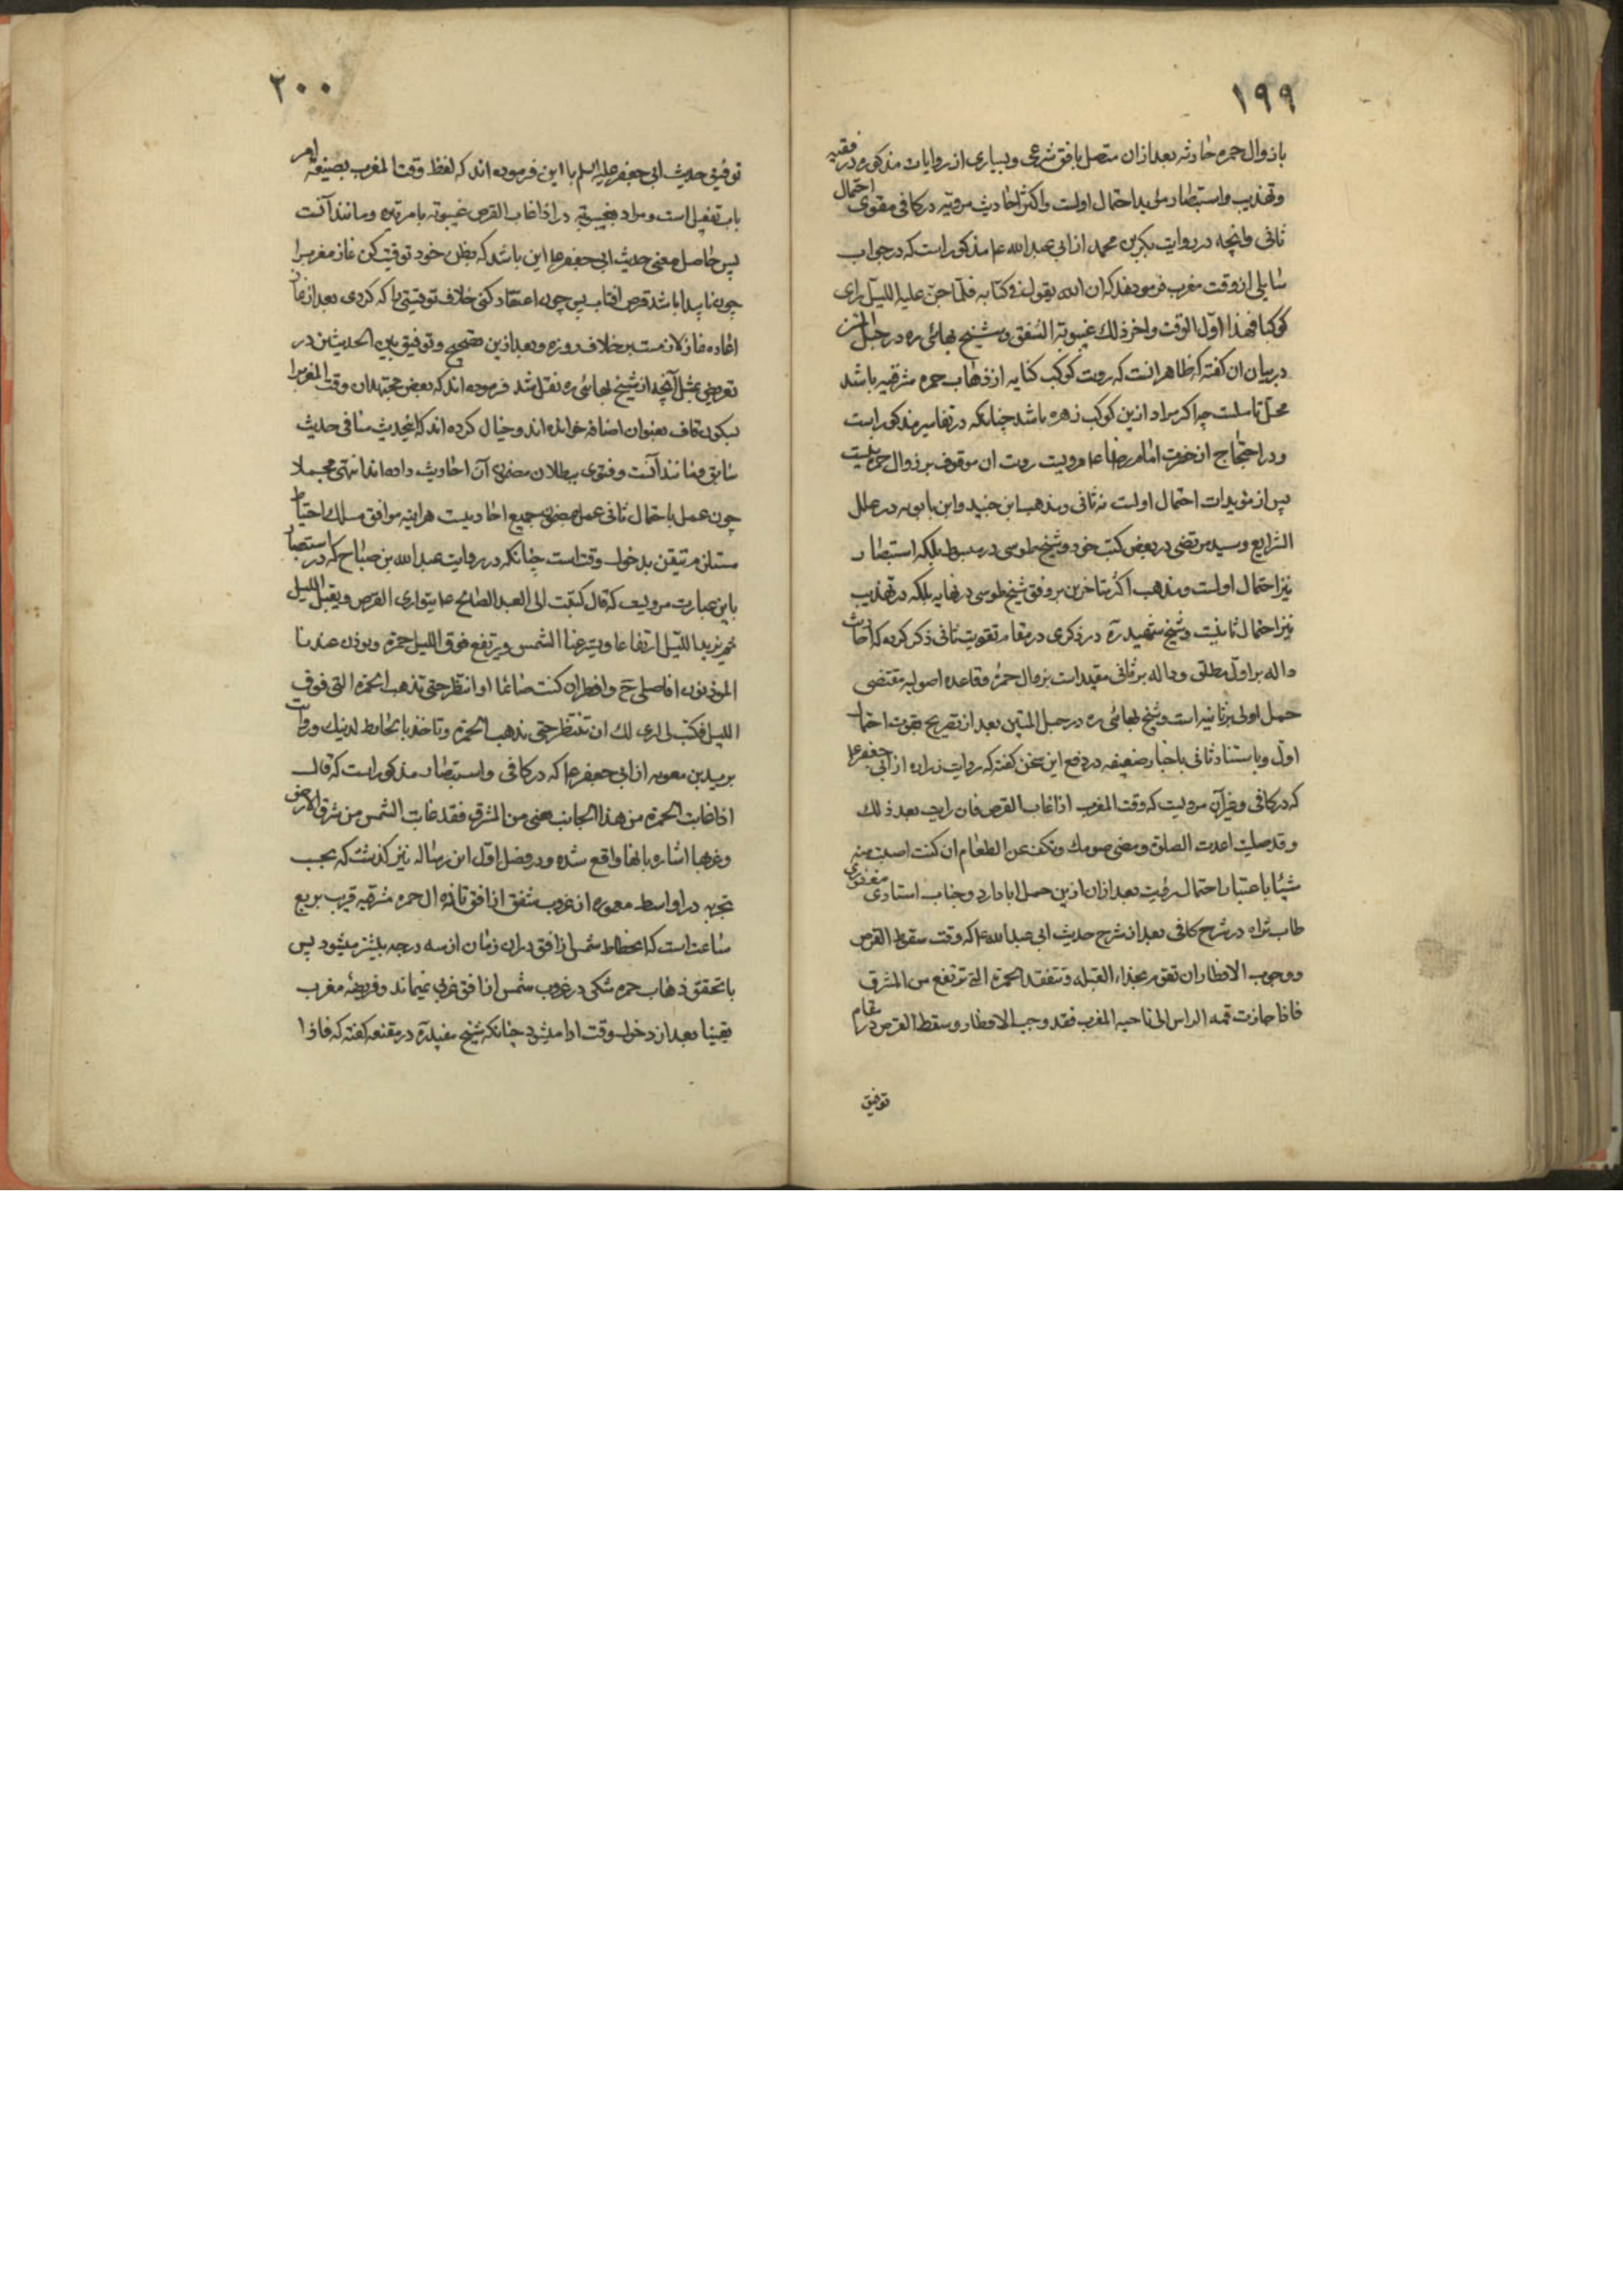 ١٩٩
با زوال حمره حادثه بعد ازان متصل بافق شرعی و بسیاری از روایات مذکوره در فقیه
وتهذیب و استبصار مؤید احتمال اولست و اکثر احادیث مرویه در کافی مقوی احتمال
ثانی و انچه در روایت بکر بن محمد از ابی عبد الله ع مذکور است که در جواب
سایلی از وقت مغرب فرمودند که ان الله یقول فی کتابه فلما جن علیه اللیل رای
کوکبا فهذا اول الوقت و اخر ذلک غیبوبة الشفق و شیخ بهائی ره در حبل المتین
در بیان ان گفته که ظاهر انست که رویت کوکب کنایه از ذهاب حمره مشرقیه باشد
محل تاملست چه اگر مراد ازین کوکب زهره باشد چنانکه در تفاسیر مذکور است
و در احتجاج از حضرت امام رضا ع مرویست رویت ان موقوف بر زوال حمره نیست
پس از مؤیدات احتمال اولست نه ثانی و مذهب ابن جنید و ابن بابویه در علل
الشرایع و سید مرتضی در بعض کتب خود و شیخ طوسی در مبسوط بلکه استبصار
نیز احتمال اولست و مذهب اکثر متاخرین بر وفق شیخ طوسی در نهایه بلکه در تهذیب
نیز احتمال ثانیست و شیخ شهید ره در ذکری در مقام تقویت ثانی ذکر کرده که احادیث
داله بر اول مطلق و داله بر ثانی مقید است بزوال حمره و قاعده اصولیه مقتضی
حمل اولی بر ثانیه است و شیخ بهائی ره در حبل المتین بعد از تصریح بقوت احتمال
اول و باستناد ثانی باخبار ضعیفه در دفع این سخن گفته که روایت زراره از ابی جعفر ع
که در کافی و غیر آن مرویست که وقت المغرب اذا غاب القرص فان رایت بعد ذلک
و قد صلیت اعدت الصلوة و مضی صومک و تکف عن الطعام ان کنت اصبت منه
شیئا باعتبار احتمال رؤیت بعد ازان ازین حمل ابا دارد و جناب استادی مغفوری
طاب ثراه در شرح کافی بعد از شرح حدیث ابی عبد الله ع که وقت سقوط القرص
و وجوب الافطار ان تقوم بحذاء القبله و تتفقد الحمرة التی ترتفع من المشرق
فاذا جازت قمه الراس الی ناحیه المغرب فقد وجب الافطار و سقط القرص در مقام
توفیق
٢٠٠
توفیق حدیث ابی جعفر علیه السلم با این فرموده اند که لفظ وقت المغرب بصیغه امر
باب تفعیل است و مراد بغیبوبة در اذا غاب القرص غیبوبة بامر تیه و مانند آنست
پس حاصل معنی حدیث ابی جعفر ع این باشد که بظن خود توقیت کن نماز مغرب را
چون ناپیدا باشد قرص افتاب پس چون اعتقاد کنی خلاف توقیتی را که کردی بعد از نماز
اعاده نماز لازمست بخلاف روزه و بعد ازین تصحیح و توفیق بین الحدیثین در
تعریض بمثل آنچه از شیخ بهائی ره نقل شد فرموده اند که بعض مجتهدان وقت المغرب را
بسکون قاف بعنوان اضافه خوانده اند و خیال کرده اند که اینحدیث منافی حدیث
سابق و مانند آنست و فتوی ببطلان مضمون آن احادیث داده اند انتهی مجملا
چون عمل باحتمال ثانی عمل بمضمون جمیع احادیث است هر اینه موافق مسلک احتیاط
مستلزم تیقن بدخول وقت است چنانکه در روایت عبد الله بن صباح که در استبصار
باین عبارت مرویست که قال کتبت الی العبد الصالح ع یتواری القرص و یقبل اللیل
ثم یزید اللیل ارتفاعا و یستر عنا الشمس و یرتفع فوق اللیل حمرة و یوذن عندنا
الموذنون افاصلی ح و افطر ان کنت صائما او انتظر حتی تذهب الحمرة التی فوق
اللیل فکتب لی اری لک ان تنتظر حتی تذهب الحمرة و تاخذ بالحائط لدینک و روایت
برید بن معویه از ابی جعفر ع که در کافی و استبصار مذکور است که قال
اذا غابت الحمرة من هذا الجانب یعنی من المشرق فقد غابت الشمس من شرق الارض
و غربها اشاره بانها واقع شده و در فصل اول این رساله نیز گذشت که بحسب
تجربه در اواسط معموره از غروب شفق از افق تا زوال حمره مشرقیه قریب بربع
ساعت است که انحطاط شمس از افق دران زمان از سه درجه بیشتر میشود پس
با تحقق ذهاب حمره شکی در غروب شمس از افق غربی نمیماند و فریضه مغرب
یقینا بعد از دخول وقت ادا میشود چنانکه شیخ مفید ره در مقنعه گفته که فاذا